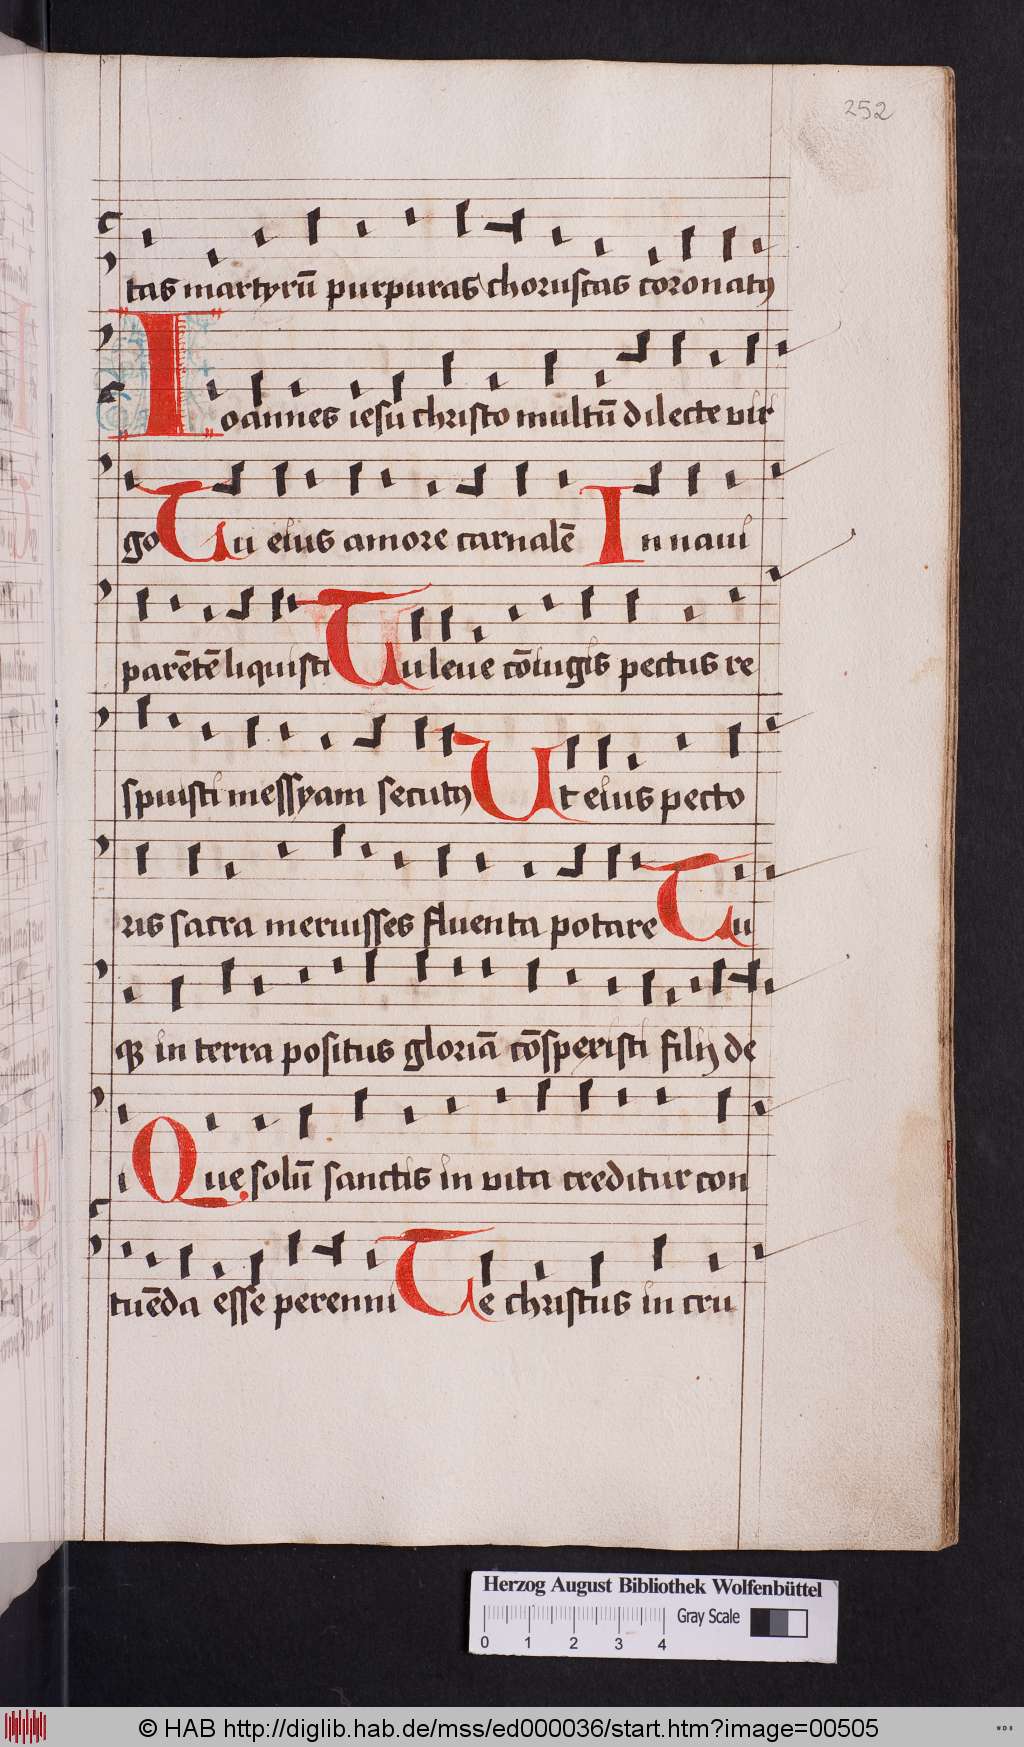 252
tas martyrū purpuras choruscas coronatꝯ
Ioannes iesu christo multū dilecte vir
go Tu eius amore carnalē In naui
parētē liquisti Tu leue cōiugis pectus re
spuisti messyam secutꝯ Ut eius pecto
ris sacra meruisses fluenta potare Tu
qꝫ in terra positus gloriā cōsperisti filij de
i Que solū sanctis in vita creditur con
tuēda esse perenni Te christus in cru
Herzog August Bibliothek Wolfenbüttel
Gray Scale
0 1 2 3 4
© HAB http://diglib.hab.de/mss/ed000036/start.htm?image=00505